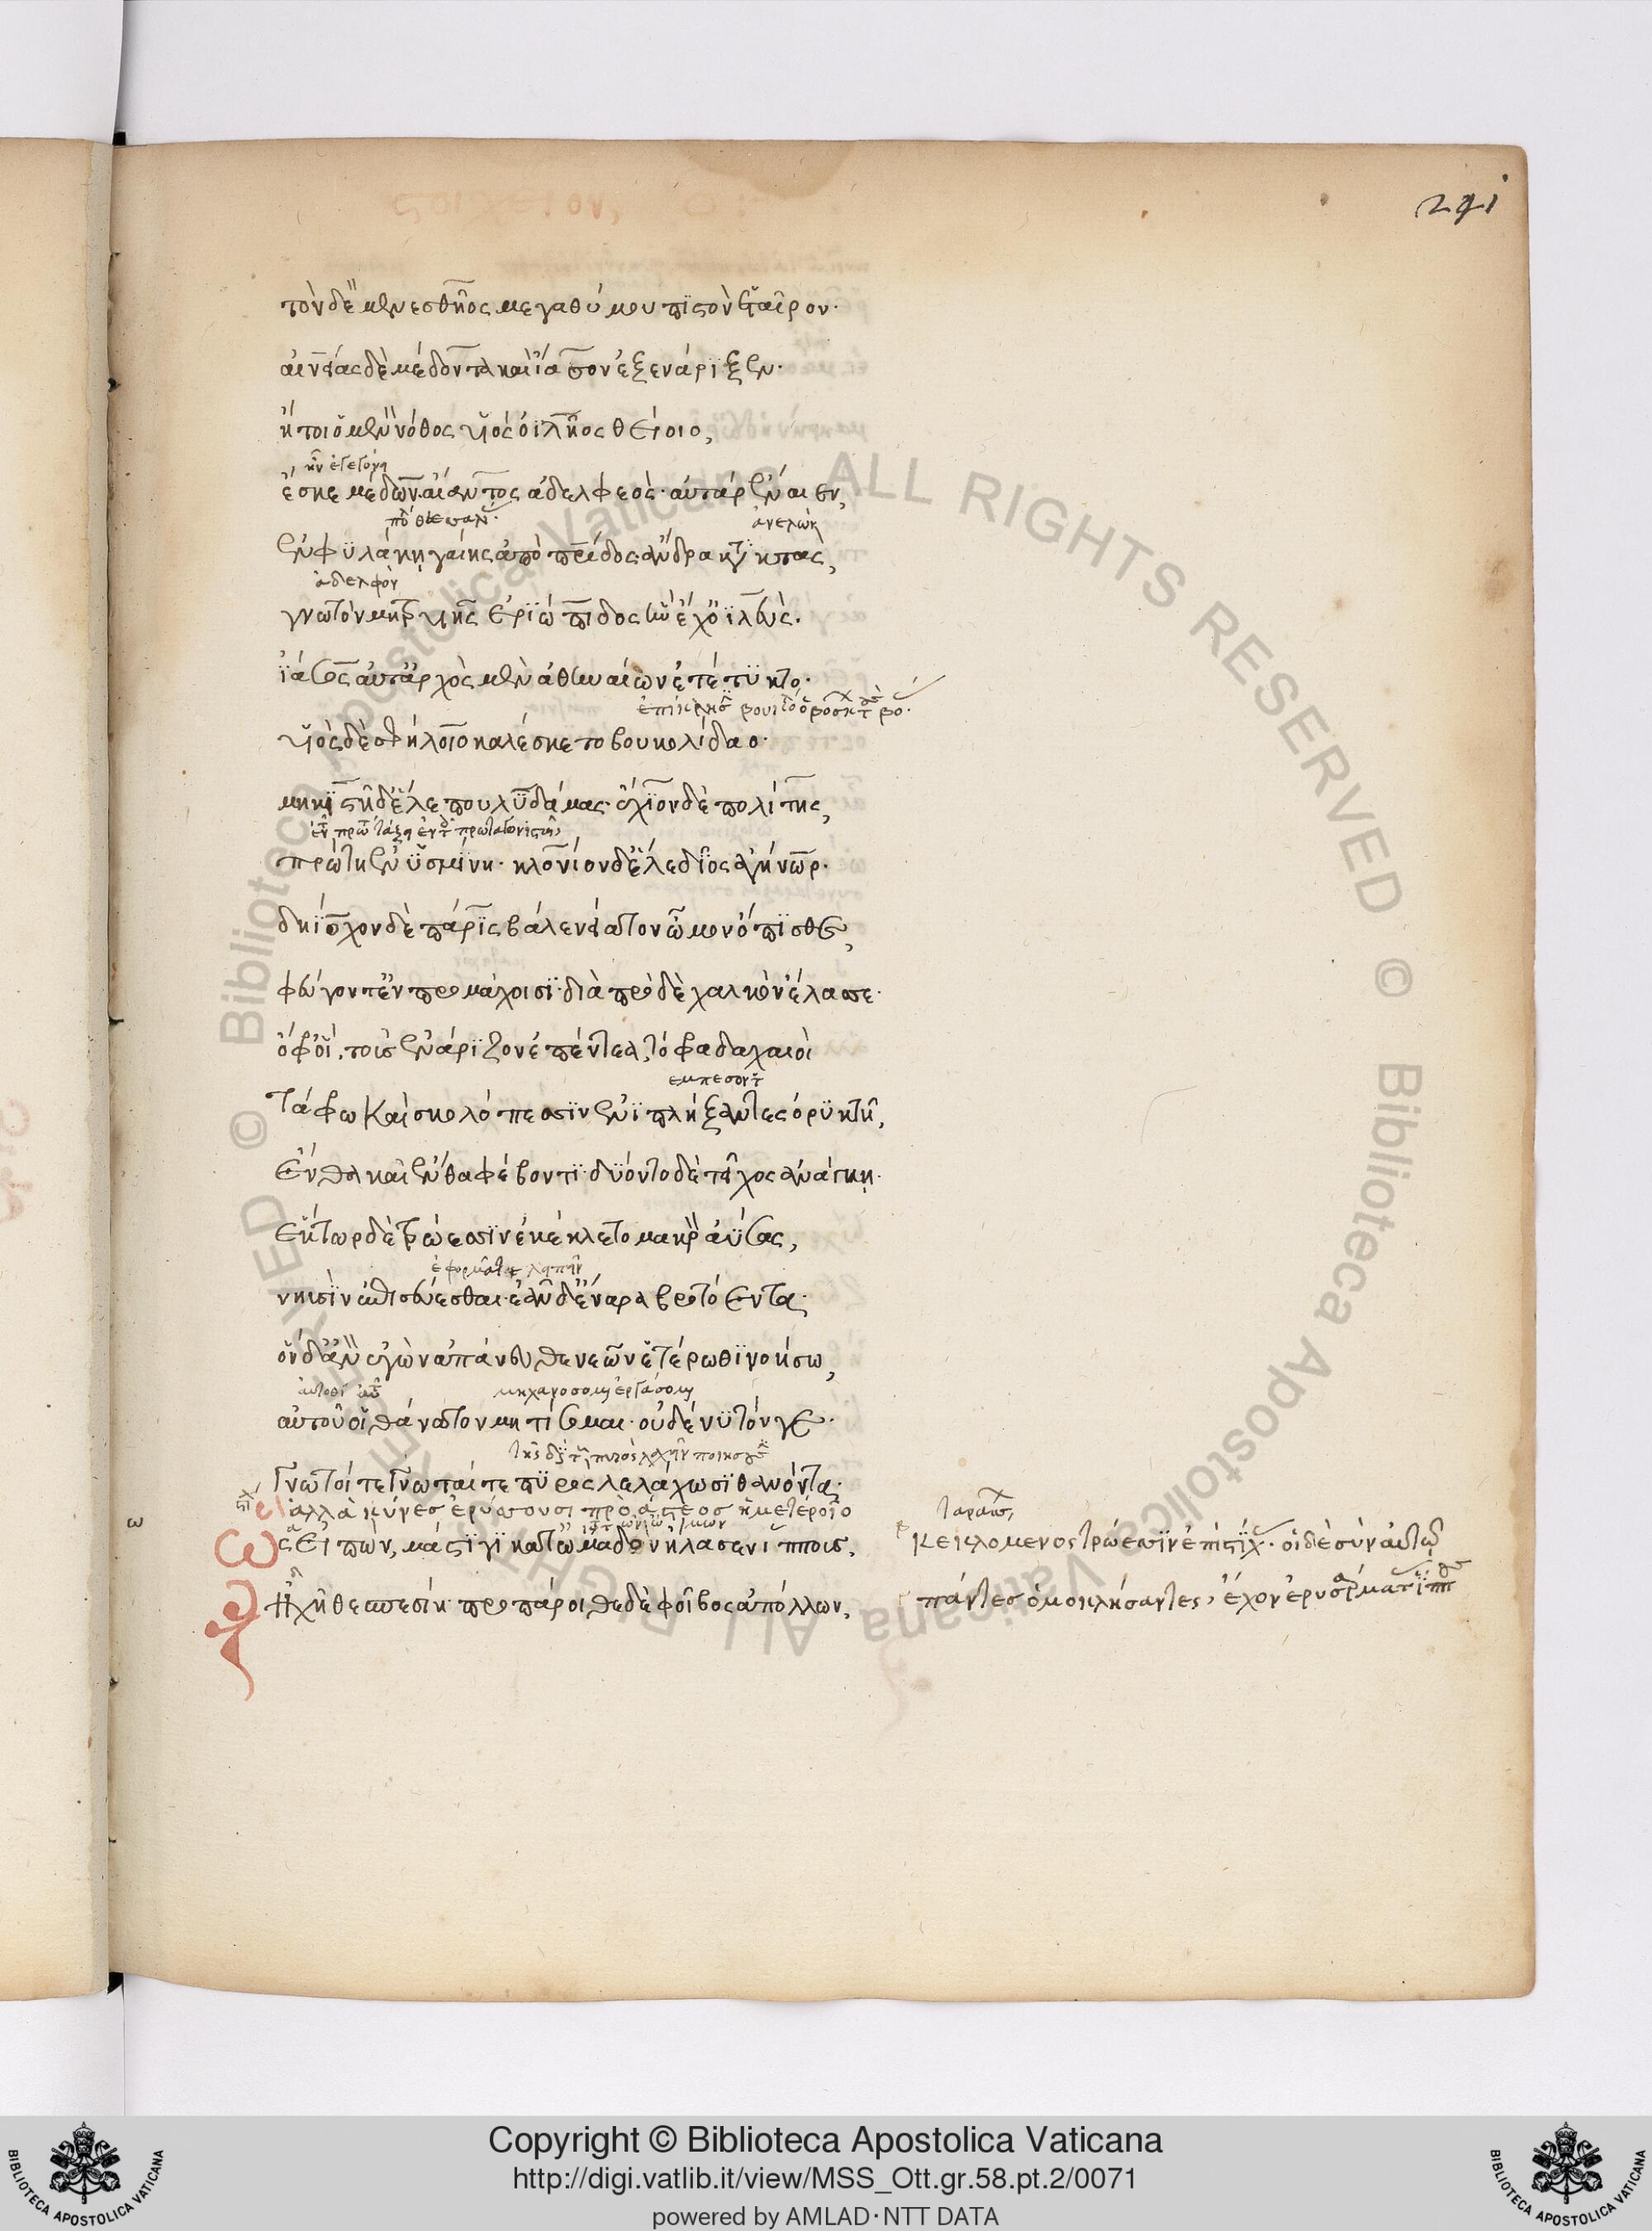 291
τὸν δὲ μενεσθῆος μεγαθύμου πϊστὸν ἑταῖρον·
αἰνείας δὲ μέδοντα καὶ ἴασον ἐξενάρϊξεν·
ἤτοι ὃ μὲν νόθος υἱὸς ὀϊλῆος θείοιο,
ἦν ἐτετόχη
ἔσκε μέδων αἴαντος ἀδελφεός· αὐτὰρ ἔναιεν,
ἀνελὼν
ἐν φϋλάκῃ γαίης ἄπο πατρίδος ἄνδρα κατακτάς,
ἀδελφὸν
γνωτὸν μητρυιῆς ἐρϊώπιδος ἣν ἔχ᾽ ὀϊλεύς·
ἴασος αὖτ᾽ ἀρχὸς μὲν ἀθηναίων ἐτέτϋκτο·
υἱὸς δὲ σφήλοιο καλέσκετο βουκολίδαο·
μηκϊστῆ δ᾽ ἕλε πουλϋδάμας· ἐχῖον δὲ πολίτης,
πρώτῃ ἐν ὑσμίνῃ· κλονίον δ᾽ ἕλε δῖος ἀγήνωρ·
δηΐοχον δὲ πάρϊς βάλε νείατον ὦμον ὄπϊσθε,
φεύγοντ᾽ ἐν προμάχοισϊ· διὰ πρὸ δὲ χαλκὸν ἔλασσε·
ὄφρ᾽ οἳ τοὺς ἐνάρϊζον ἀπ᾽ ἔντεα, τόφρα δ᾽ ἀχαιοὶ
εμπεσοντ
τάφρῳ καὶ σκολόπεσσϊν ἐνϊπλήξαντες ὀρϋκτῇ,
ἔνθα καὶ ἔνθα φέβοντο· δύοντο δὲ τεῖχος ἀνάγκῃ·
ἕκτωρ δὲ τρώεσσϊν ἐκέκλετο μακρὸν ἀΰσας,
νηυσϊν ἐπισσεύεσθαι· ἐᾶν δ᾽ ἔναρα βροτόεντα·
ὃν δ᾽ ἂν ἐγὼν ἀπάνευθε νεῶν ἑτέρωθϊ νοήσω,
αὐτοῦ οἱ θάνατον μητίσομαι· οὐδέ νϋ τόν γε·
γνωτοί τε γνωταί τε πϋρὸς λελάχωσϊ θανόντα·
ἀλλὰ κύνες ἐρύουσι πρὸ ἄστεος ἡμετέροιο
ω
ὣς εἰπὼν, μάστϊγϊ κατωμαδὸν ἤλασεν ἵππους,
κεκλόμενος τρώεσσϊν ἐπὶ στϊχ· οἱ δὲ σὺν αὐτῷ
ἠχῇ θεσπεσίῃ· προπάροιθε δὲ φοῖβος ἀπόλλων,
πάντες ὁμοκλήσαντες, ἔχον ἐρυσάρματ ἵππ
Copyright © Biblioteca Apostolica Vaticana
http://digi.vatlib.it/view/MSS_Ott.gr.58.pt.2/0071
powered by AMLAD·NTT DATA
BIBLIOTECA APOSTOLICA VATICANA
BIBLIOTECA APOSTOLICA VATICANA
© Biblioteca Apostolica Vaticana ALL RIGHTS RESERVED
© Biblioteca Apostolica Vaticana ALL RIGHTS RESERVED